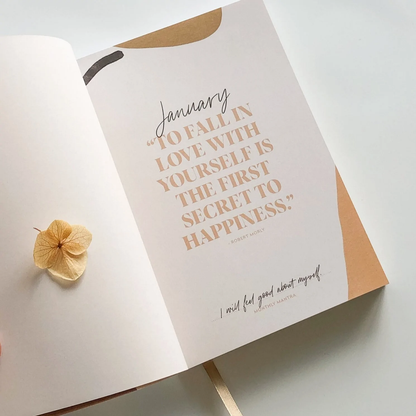 January
“TO FALL IN
LOVE WITH
YOURSELF IS
THE FIRST
SECRET TO
HAPPINESS.”
ROBERT MORLY
I will feel good about myself.
MONTHLY MANTRA